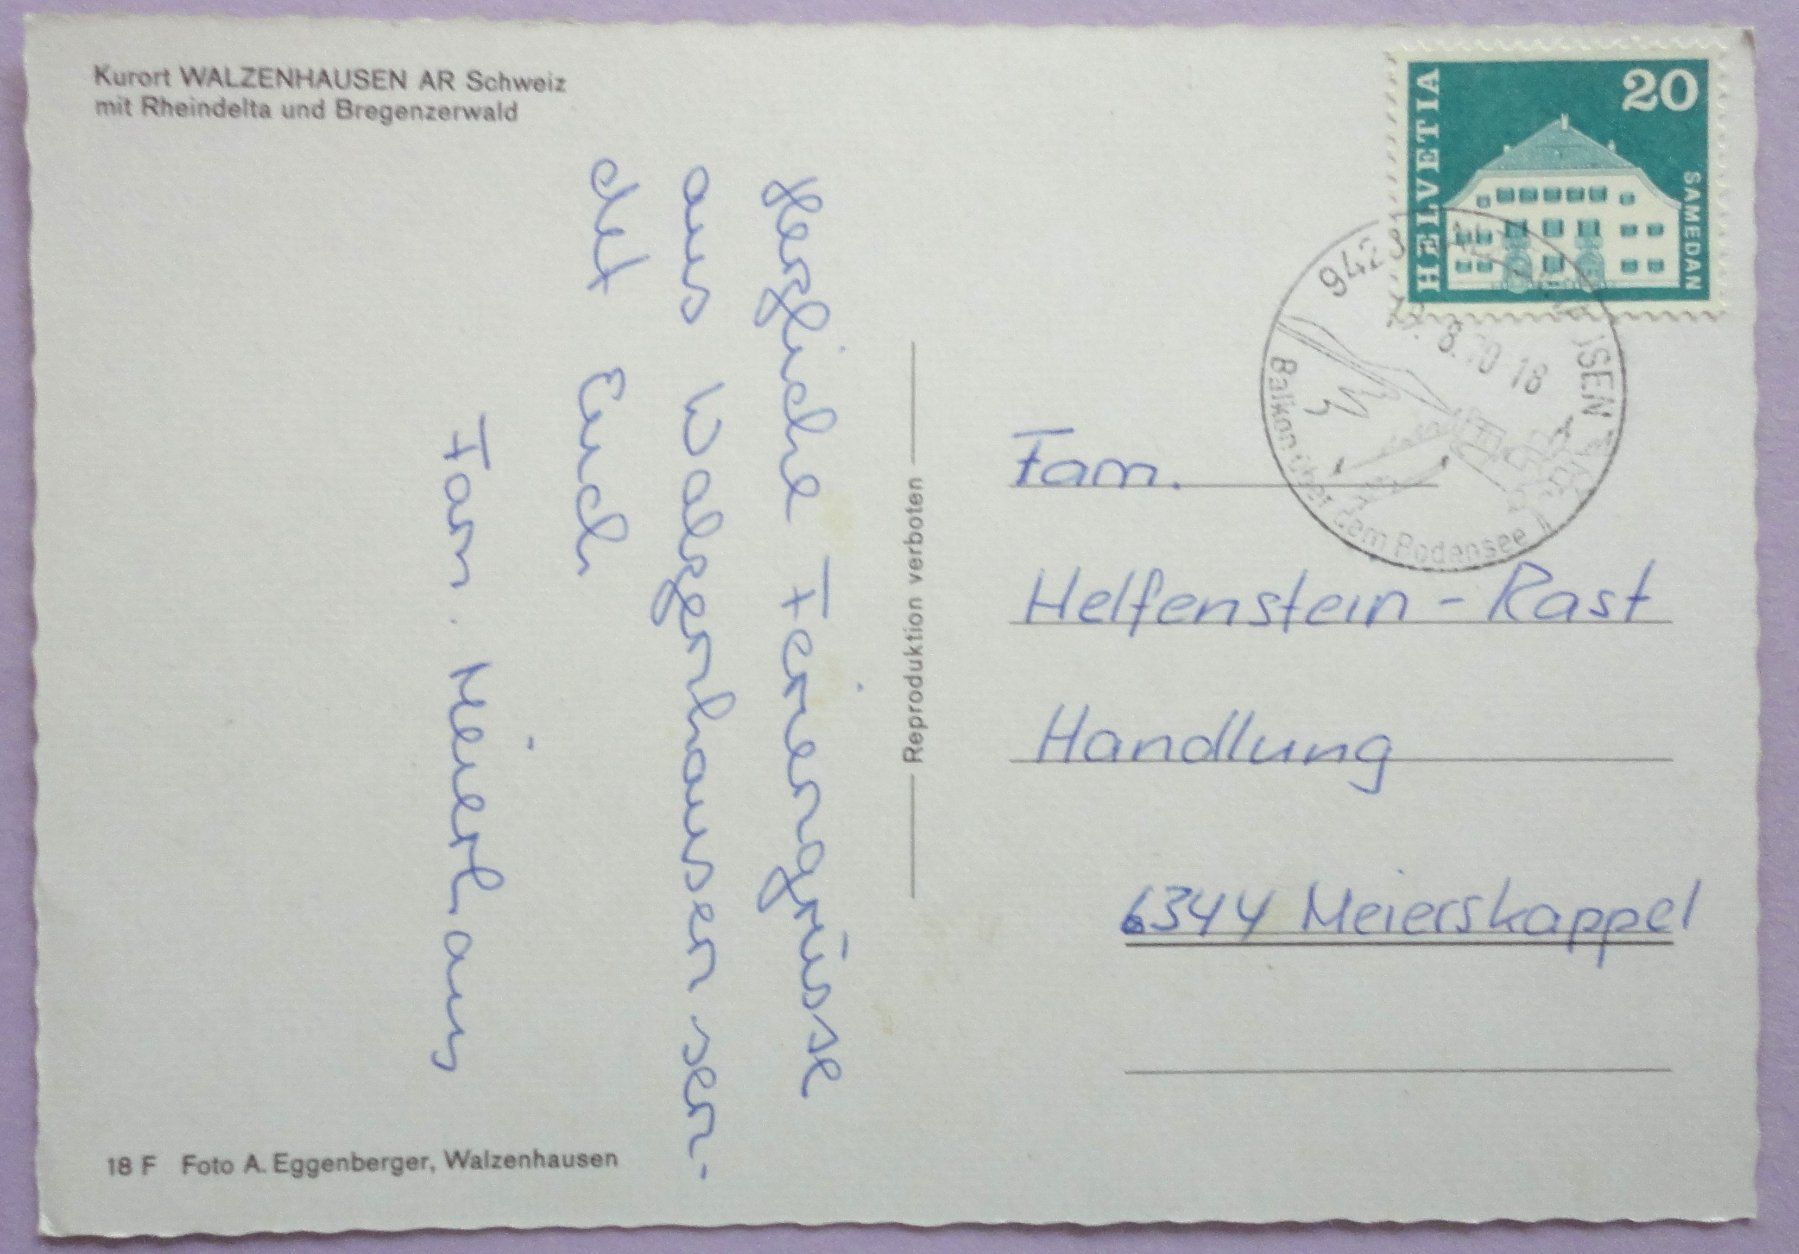 Kurort WALZENHAUSEN AR Schweiz
mit Rheindelta und Bregenzerwald
Herzliche Feriengrüsse
aus Walzenhausen sen-
det Euch
Fam. Meierhans
18 F Foto A. Eggenberger, Walzenhausen
Reproduktion verboten
HELVETIA
20
SAMEDAN
8.70 18
Balkon über dem Bodensee
Fam.
Helfenstein - Rast
Handlung
6344 Meierskappel